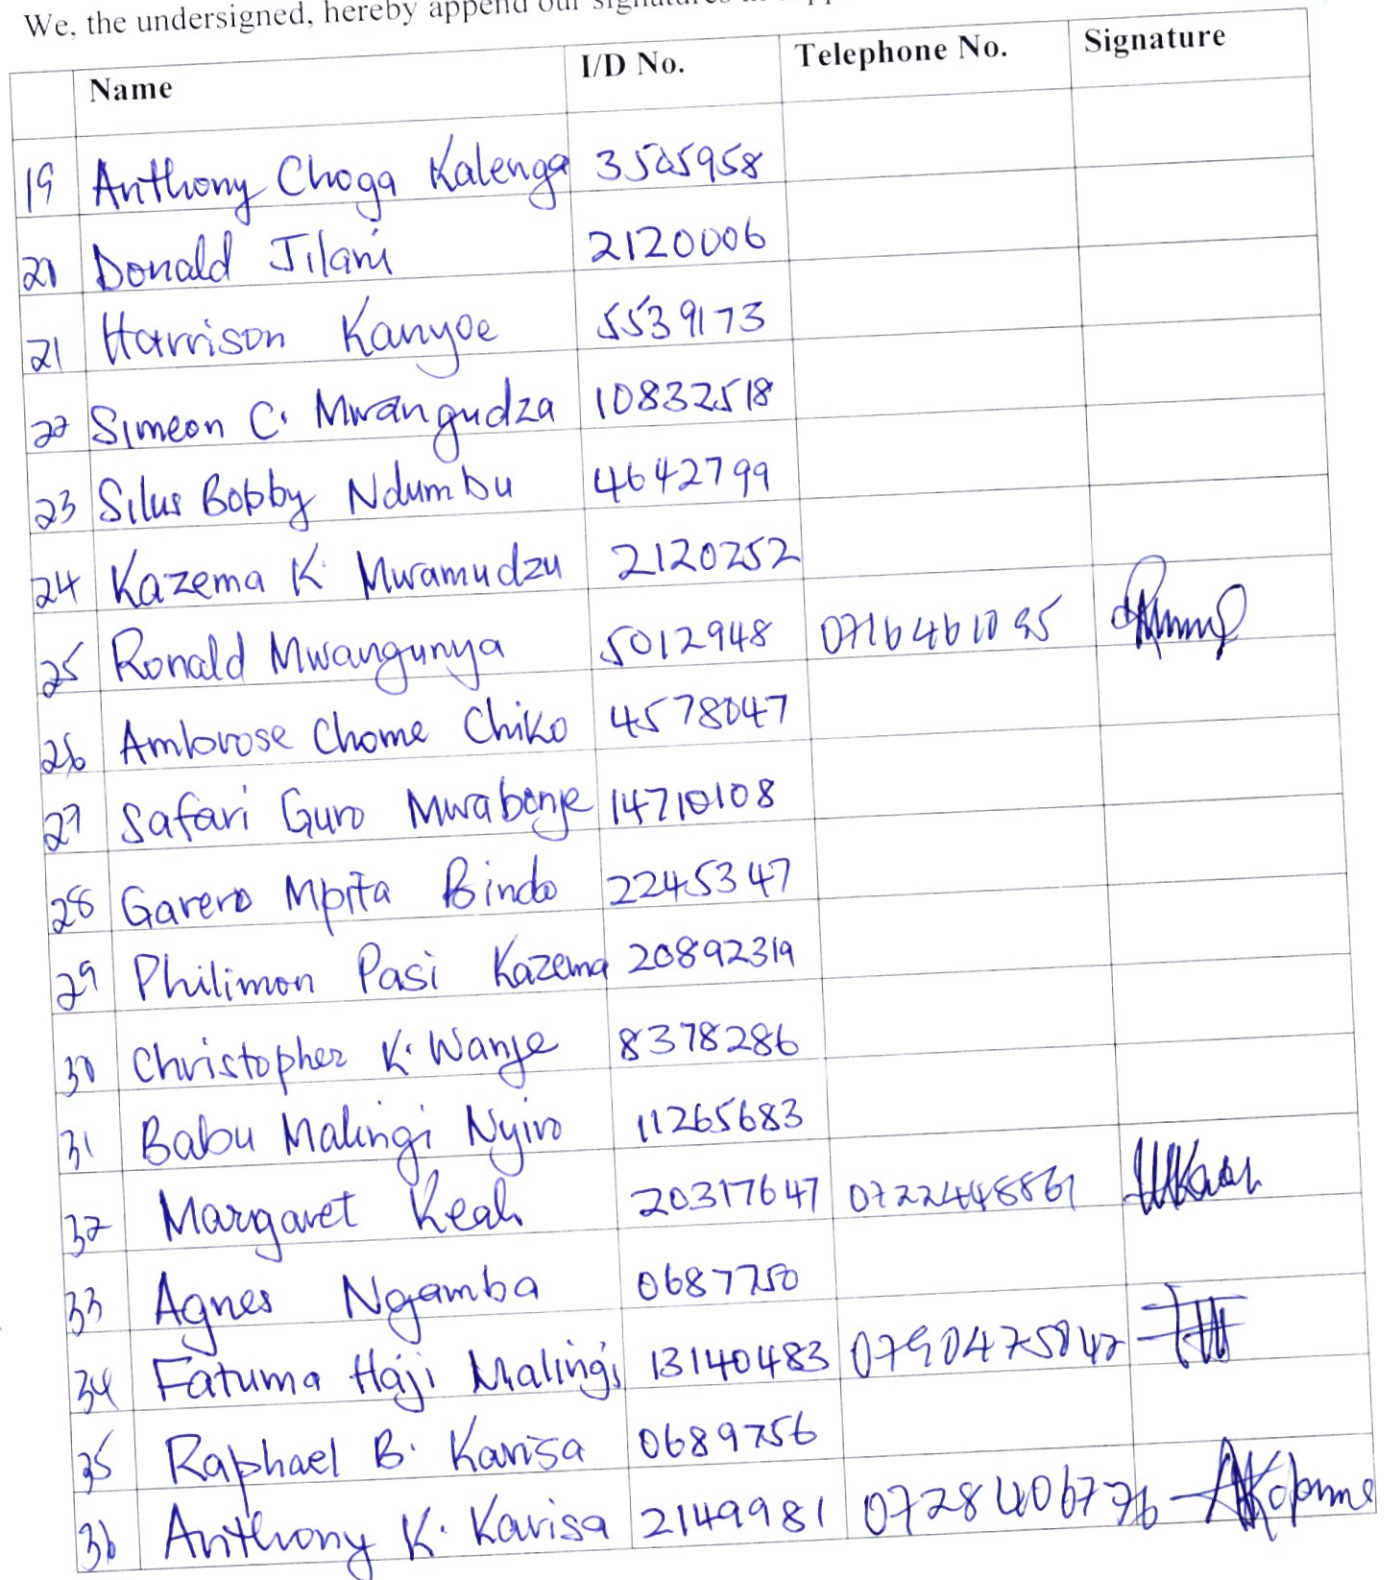 We, the undersigned, hereby append our signatures
Name I/D No. Telephone No. Signature
19 Anthony Choga Kalenga 3505958
20 Donald Jilani 2120006
21 Harrison Kanyoe 5539173
22 Simeon C. Mwangudza 10832518
23 Silus Bobby Ndumbu 4642799
24 Kazema K. Mwamudzu 2120252
25 Ronald Mwangunya 5012948 0716461095
26 Ambrose Chome Chiko 4578047
27 Safari Guro Mwabonje 14710108
28 Garero Mpita Bindo 2245347
29 Philimon Pasi Kazema 20892319
30 Christopher K. Wanje 8378286
31 Babu Malingi Nyiro 11265683
32 Margaret Keah 20317647 0722448861
33 Agnes Ngamba 0687750
34 Fatuma Haji Malingi 13140483 0790475042
35 Raphael B. Karisa 0689756
36 Anthony K. Karisa 2149981 0728406776